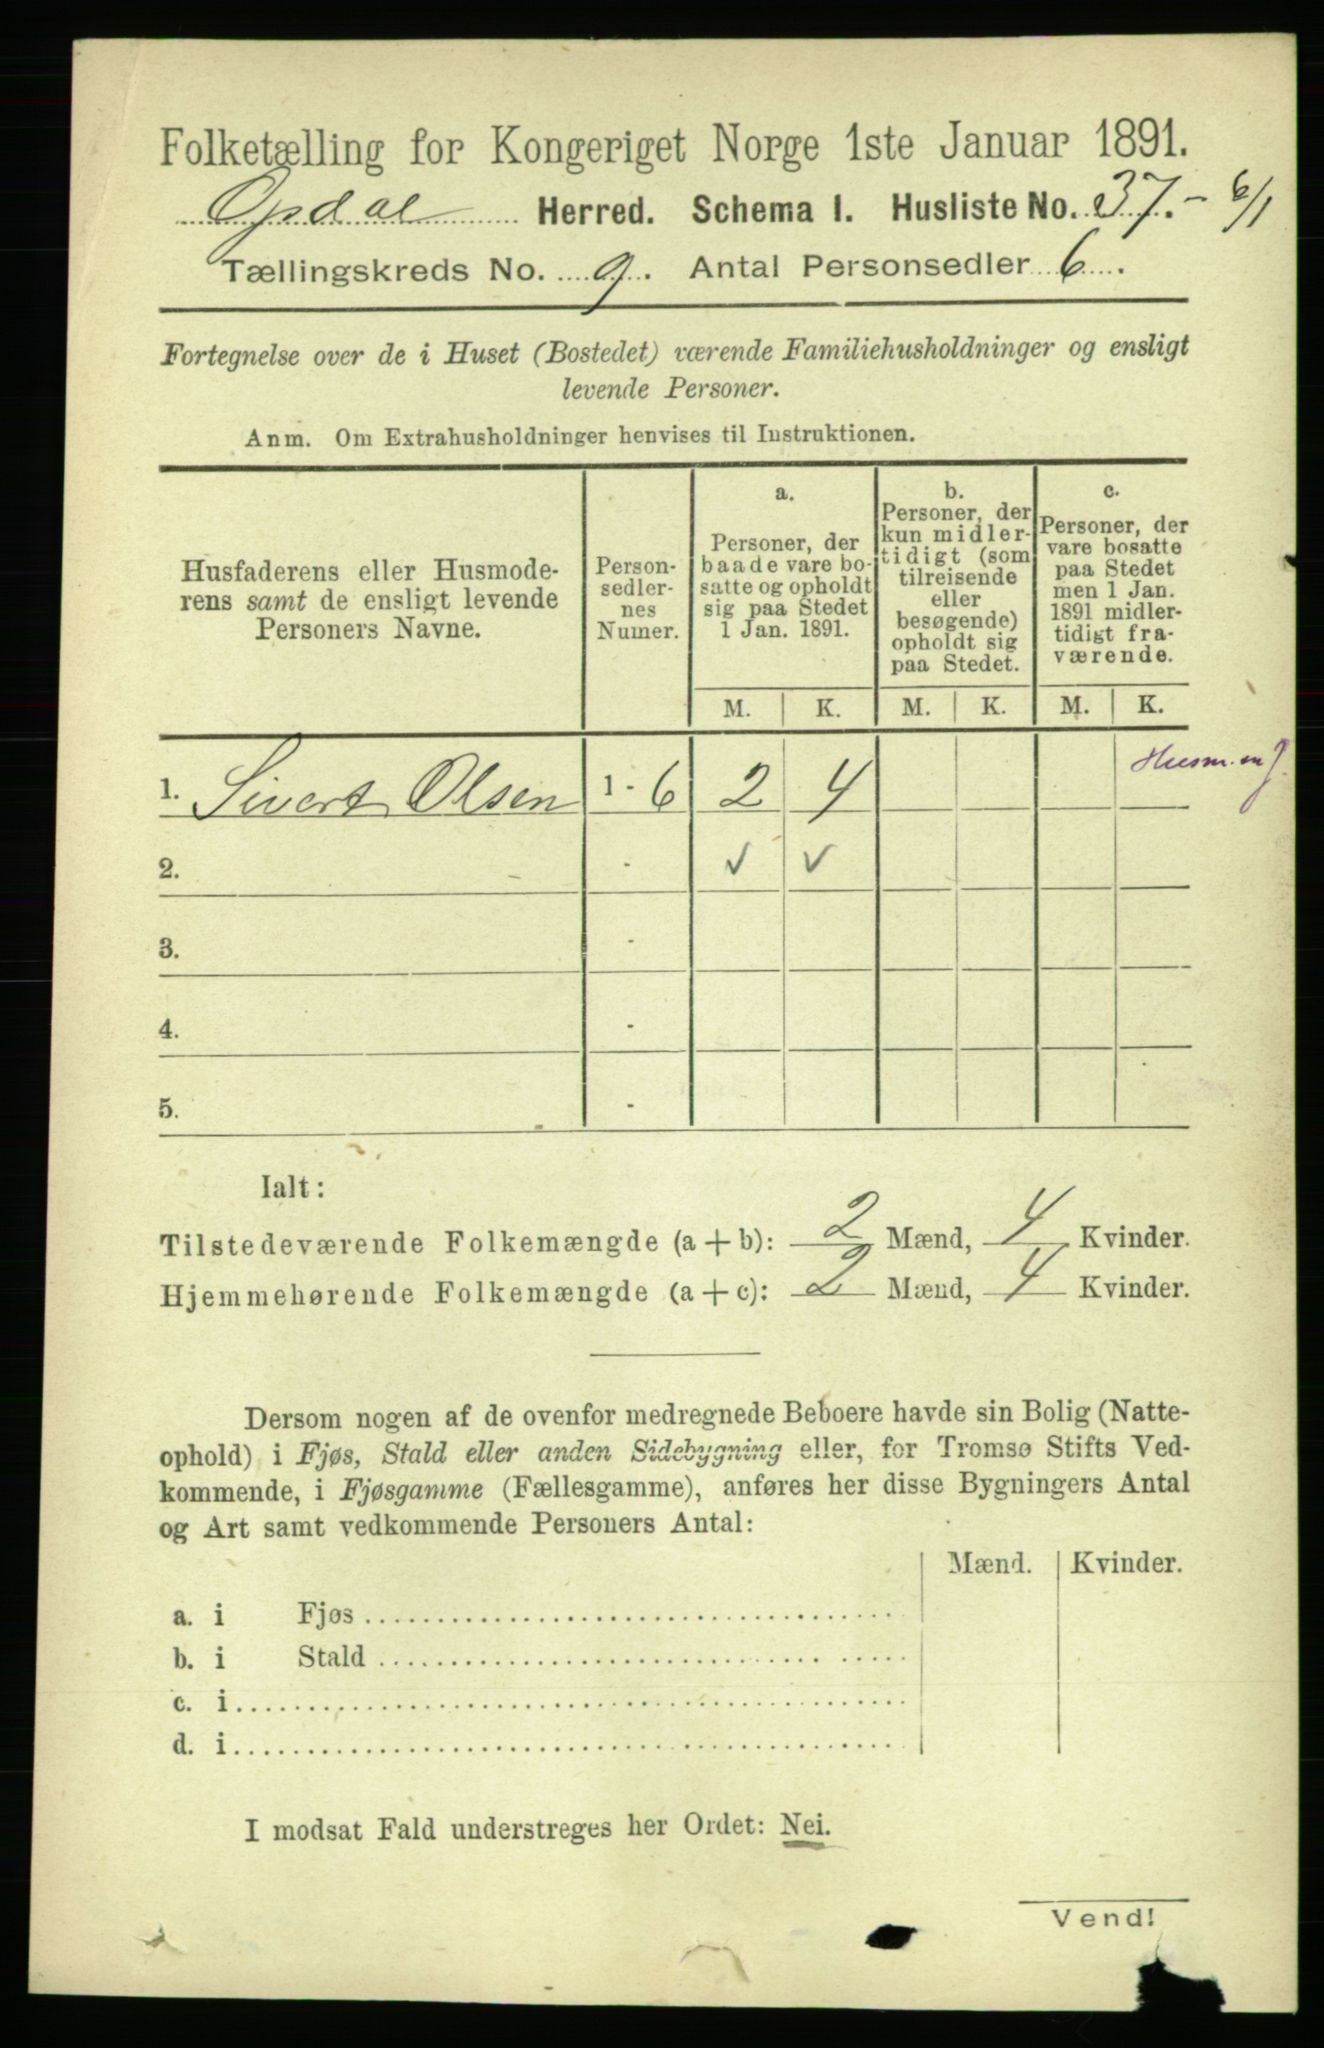 Folketælling for Kongeriget Norge 1ste Januar 1891.
Opdal Herred. Schema I. Husliste No. 37.- 6/1
Tællingskreds No. 9. Antal Personsedler 6.
Fortegnelse over de i Huset (Bostedet) værende Familiehusholdninger og ensligt
levende Personer.
Anm. Om Extrahusholdninger henvises til Instruktionen.
Husfaderens eller Husmode-
rens samt de ensligt levende
Personers Navne.
Person-
sedler-
nes
Numer.
a.
Personer, der
baade vare bo-
satte og opholdt
sig paa Stedet
1 Jan. 1891.
b.
Personer, der
kun midler-
tidigt (som
tilreisende
eller
besøgende)
opholdt sig
paa Stedet.
c.
Personer, der
vare bosatte
paa Stedet
men 1 Jan.
1891 midler-
tidigt fra-
værende.
M. K. M. K. M. K.
1. Sivert Olsen 1 - 6 2 4 Husm. m J.
2. - ✓ ✓
3. -
4. -
5. -
Ialt:
Tilstedeværende Folkemængde (a + b): 2 Mænd, 4 Kvinder.
Hjemmehørende Folkemængde (a + c): 2 Mænd, 4 Kvinder.
Dersom nogen af de ovenfor medregnede Beboere havde sin Bolig (Natte-
ophold) i Fjøs, Stald eller anden Sidebygning eller, for Tromsø Stifts Ved-
kommende, i Fjøsgamme (Fællesgamme), anføres her disse Bygningers Antal
og Art samt vedkommende Personers Antal:
Mænd. Kvinder.
a. i Fjøs
b. i Stald
c. i
d. i
I modsat Fald understreges her Ordet: Nei.
Vend!